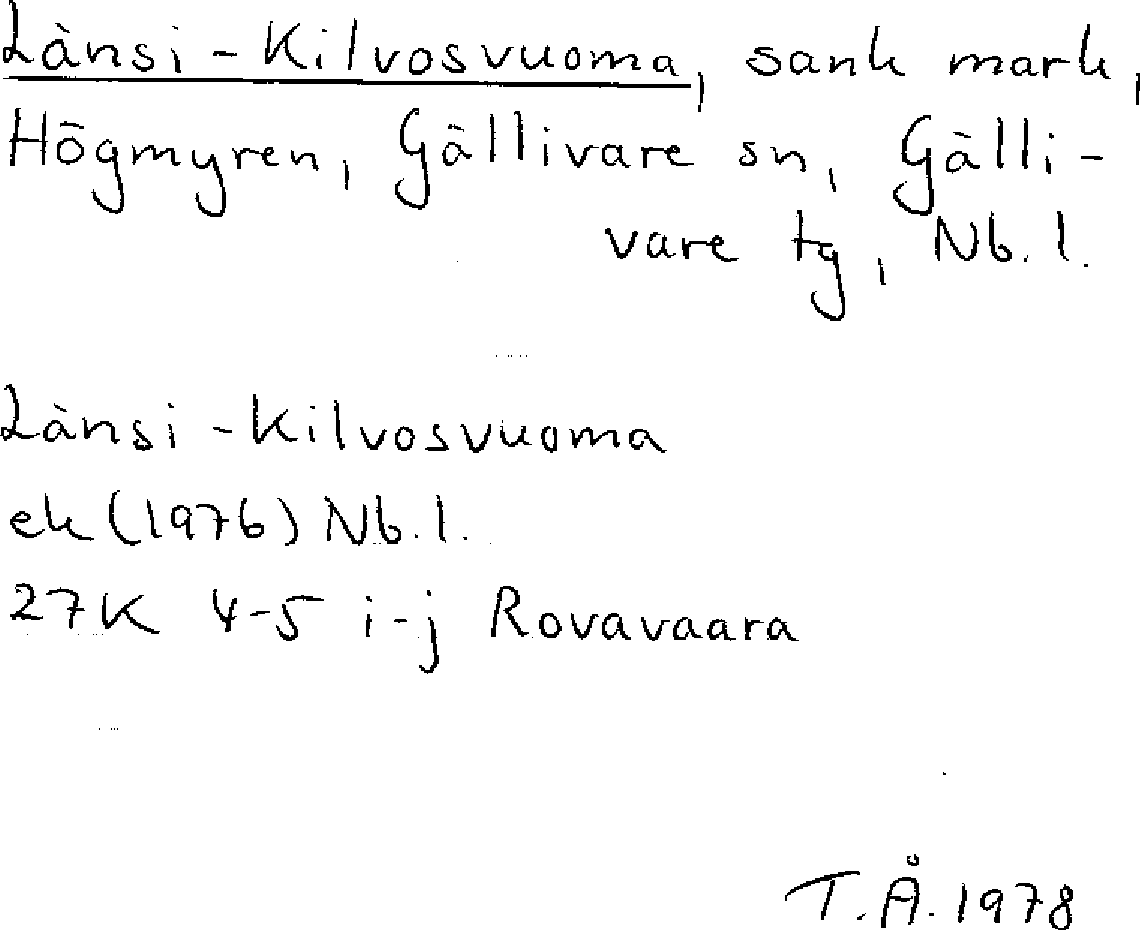 Länsi-Kilvosvuoma, sank mark,
Högmyren, Gällivare sn, Gälli-
vare tg, Nb. l.
Länsi-Kilvosvuoma
ek (1976) Nb. l.
27K 4-5 i-j Rovavaara
T.Å. 1978